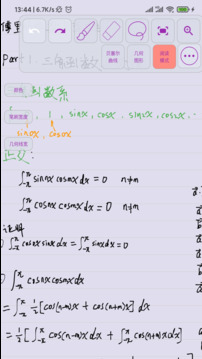 13:44 | 6.7K/s
贝塞尔曲线
几何图形
阅读模式
Part 1. 三角函数
颜色
函数系
笔画宽度
1, sinx, cosx, sin2x, cos2x, ...
sin0x, cos0x
几何线宽
正交:
∫_{-π}^{π} sinnx cosmx dx = 0 n≠m
∫_{-π}^{π} cosnx cosmx dx = 0 n≠m
证明
① ∫_{-π}^{π} cos0x sinx dx = ∫_{-π}^{π} sinx dx = 0
∫_{-π}^{π} cosnx cosmx dx
= ∫_{-π}^{π} 1/2 [cos(n-m)x + cos(n+m)x] dx
= 1/2 [∫_{-π}^{π} cos(n-m)x dx + ∫_{-π}^{π} cos(n+m)x dx]